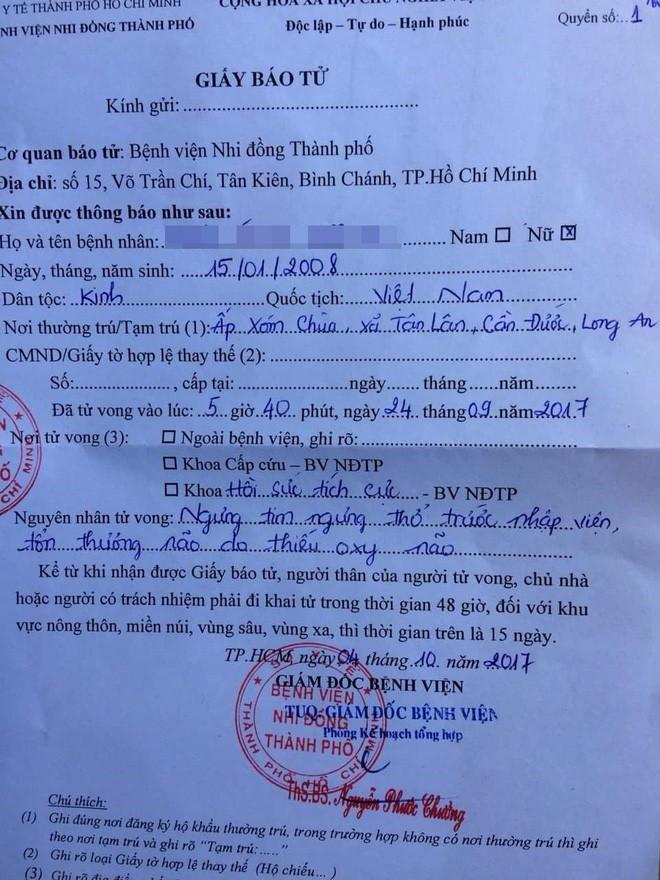 Y TẾ THÀNH PHỐ HỒ CHÍ MINH
CỘNG HÒA XÃ HỘI CHỦ NGHĨA VIỆT
NH VIỆN NHI ĐỒNG THÀNH PHỐ
Độc lập – Tự do – Hạnh phúc
Quyển số:..1
GIẤY BÁO TỬ
Kính gửi:..................................................
Cơ quan báo tử: Bệnh viện Nhi đồng Thành phố
Địa chỉ: số 15, Võ Trần Chí, Tân Kiên, Bình Chánh, TP.Hồ Chí Minh
Xin được thông báo như sau:
Họ và tên bệnh nhân:........... Nam ☐ Nữ ☒
Ngày, tháng, năm sinh: ...15/01/2008...........................
Dân tộc: Kinh.........................Quốc tịch:.......Việt Nam.................
Nơi thường trú/Tạm trú (1):Ấp Xóm Chùa, xã Tân Lân, Cần Đước, Long An
CMND/Giấy tờ hợp lệ thay thế (2):..................................................
Số:................, cấp tại:....................ngày....... tháng.......năm........
Đã tử vong vào lúc: 5 giờ 40 phút, ngày 24 tháng 09 năm 2017
Nơi tử vong (3): ☐ Ngoài bệnh viện, ghi rõ:....................................
☐ Khoa Cấp cứu – BV NĐTP
☐ Khoa Hồi sức tích cực.... - BV NĐTP
Nguyên nhân tử vong: Ngưng tim ngưng thở trước nhập viện,
tổn thương não do thiếu oxy não...................
Kể từ khi nhận được Giấy báo tử, người thân của người tử vong, chủ nhà
hoặc người có trách nhiệm phải đi khai tử trong thời gian 48 giờ, đối với khu
vực nông thôn, miền núi, vùng sâu, vùng xa, thì thời gian trên là 15 ngày.
TP.HCM, ngày 04 tháng 10 năm 2017
GIÁM ĐỐC BỆNH VIỆN
TUQ.GIÁM ĐỐC BỆNH VIỆN
Phòng Kế hoạch tổng hợp
BỆNH VIỆN
NHI ĐỒNG
THÀNH PHỐ
ThS.BS. Nguyễn Phước Chưởng
Chú thích:
(1) Ghi đúng nơi đăng ký hộ khẩu thường trú, trong trường hợp không có nơi thường trú thì ghi
theo nơi tạm trú và ghi rõ "Tạm trú:....."
(2) Ghi rõ loại Giấy tờ hợp lệ thay thế (Hộ chiếu... )
(3) Ghi rõ địa điểm